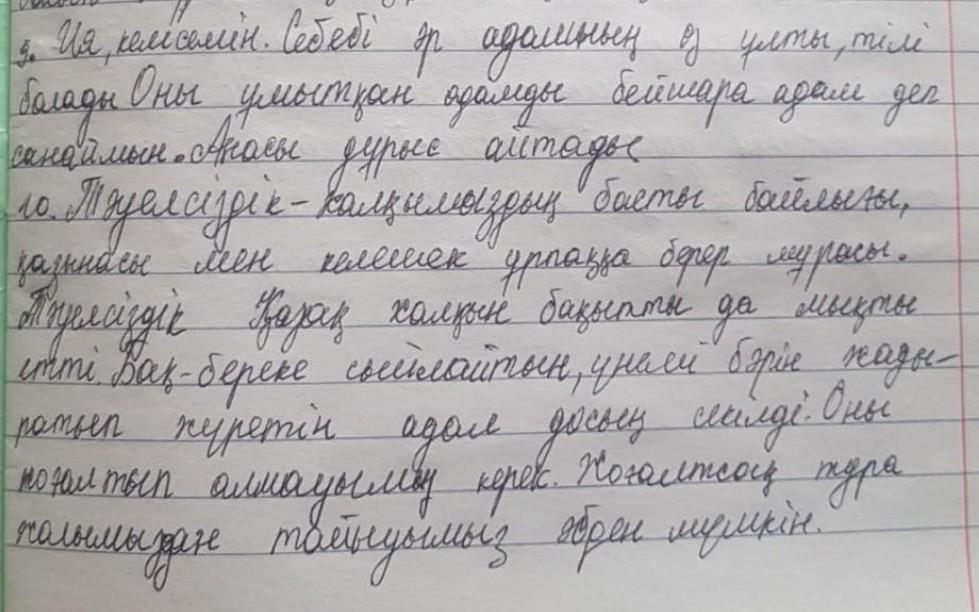 9. Ия, келісемін. Себебі әр адамның өз ұлты, тілі
болады Оны ұмытқан адамды бейшара адам деп
санаймын. Анасы дұрыс айтады
10. Тәуелсіздік – халқымыздың басты байлығы,
қазынасы мен келешек ұрпаққа берер мұрасы.
Тәуелсіздік Қазақ халқын бақытты да мықты
етті. Бақ-береке сыйлайтын, үнемі бәрін жады-
ратып жүретін адам досың секілді. Оны
жоғалтып алмауымыз керек. Жоғалтсақ тура
жолымыздан тайуымыз әбден мүмкін.